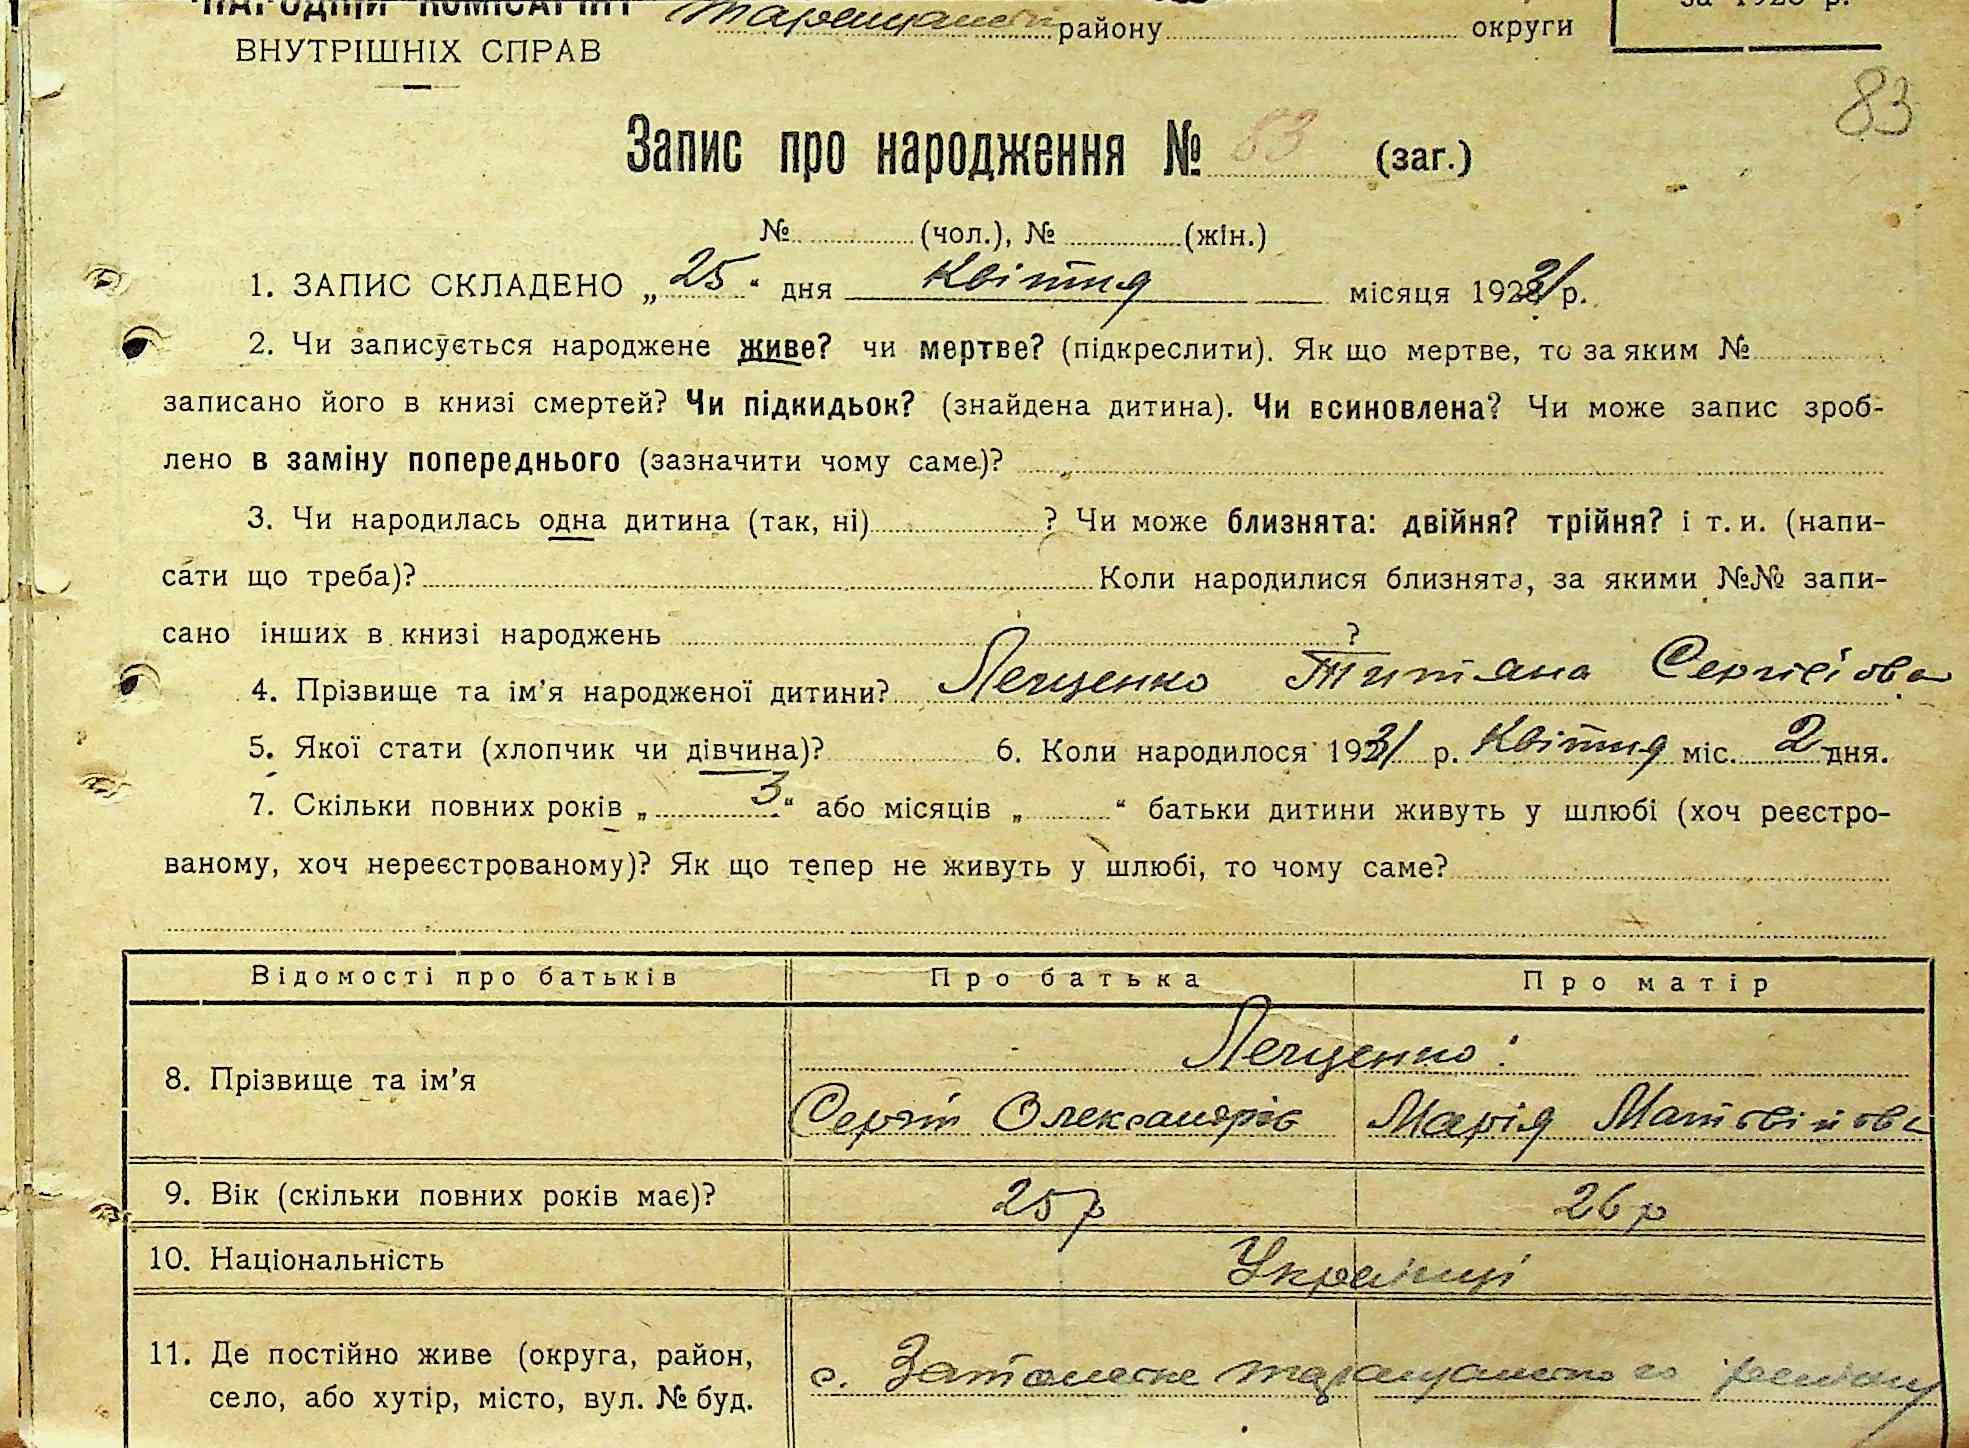 НАРОДНІЙ КОМІСАРІЯТ
ВНУТРІШНІХ СПРАВ
району округи
за 1928 р.
83
Запис про народження № 83 (заг.)
№ (чол.), № (жін.)
1. ЗАПИС СКЛАДЕНО „25“ дня Квітня місяця 1931 р.
2. Чи записується народжене живе? чи мертве? (підкреслити). Як що мертве, то за яким №
записано його в книзі смертей? Чи підкидьок? (знайдена дитина). Чи всиновлена? Чи може запис зроб-
лено в заміну попереднього (зазначити чому саме)?
3. Чи народилась одна дитина (так, ні) ? Чи може близнята: двійня? трійня? і т. и. (напи-
сати що треба)? Коли народилися близнята, за якими №№ запи-
сано інших в книзі народжень ?
4. Прізвище та ім'я народженої дитини? Лещенко Титяна Сергієівна
5. Якої стати (хлопчик чи дівчина)? 6. Коли народилося 1931 р. Квітня міс. 2 дня.
7. Скільки повних років „3“ або місяців „ “ батьки дитини живуть у шлюбі (хоч реєстро-
ваному, хоч нереєстрованому)? Як що тепер не живуть у шлюбі, то чому саме?
Відомості про батьків Про батька Про матір
8. Прізвище та ім'я Лещенко:
Сергій Олександрів Марія Матвійовна
9. Вік (скільки повних років має)? 25 р 26 р
10. Національність Українці
11. Де постійно живе (округа, район,
село, або хутір, місто, вул. № буд. с. Таращанського району